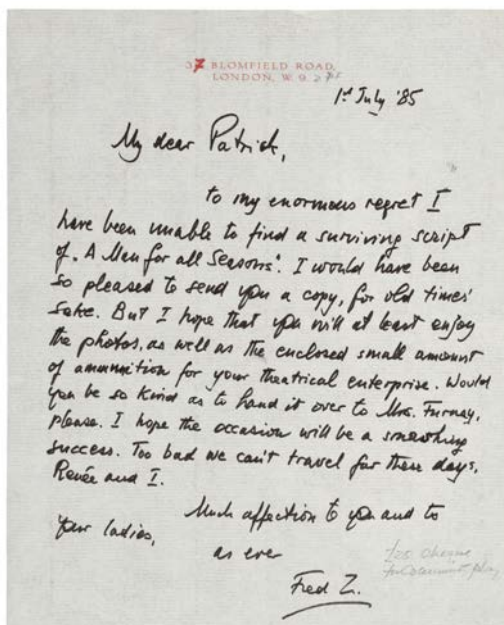 37 BLOMFIELD ROAD,
LONDON, W 9.
1st July '85
My dear Patrick,
to my enormous regret I
have been unable to find a surviving script
of „A Man for all Seasons". I would have been
so pleased to send you a copy, for old times'
sake. But I hope that you will at least enjoy
the photos, as well as the enclosed small amount
of ammunition for your theatrical enterprise. Would
you be so kind as to hand it over to Mrs. Furnay,
please. I hope the occasion will be a smashing
success. Too bad we can't travel far these days,
Renée and I.
Much affection to you and to
your ladies,
as ever
Fred Z.
cheque